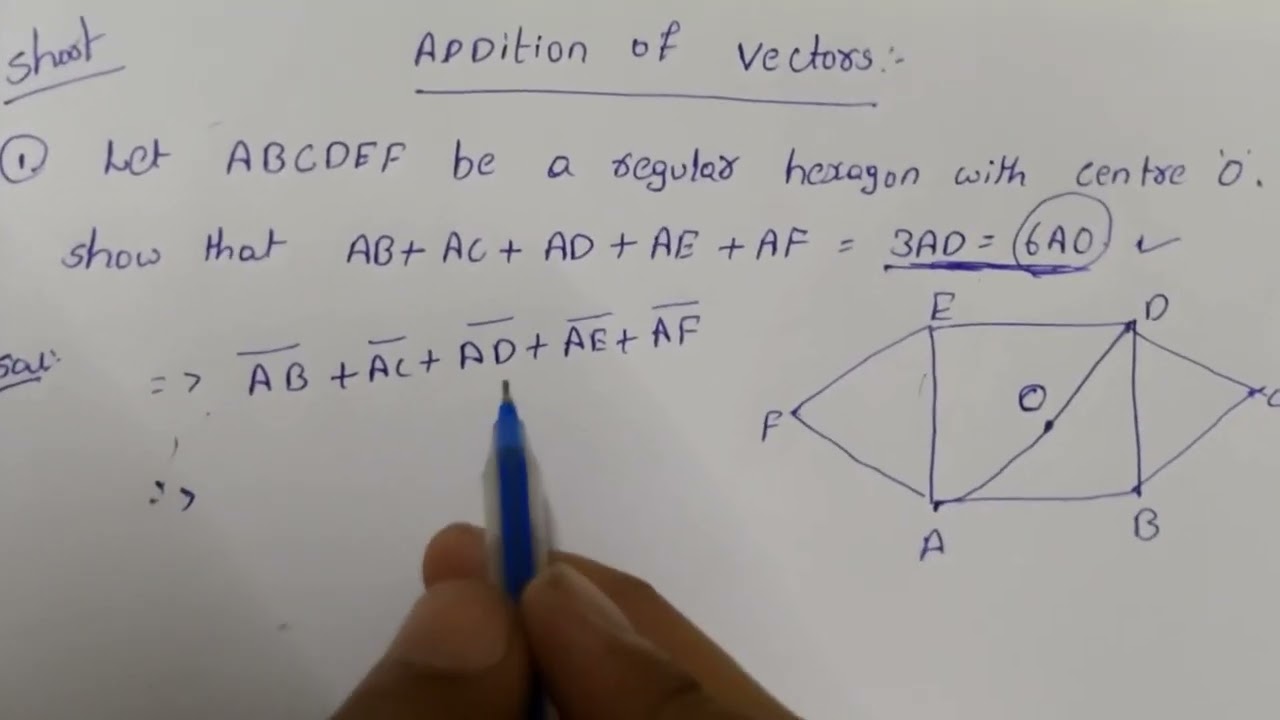 Short
Addition of Vectors:-
① Let ABCDEF be a regular hexagon with centre 'O'.
show that AB + AC + AD + AE + AF = 3AD = 6AO ✓
Sol:
=> A̅B̅ + A̅C̅ + A̅D̅ + A̅E̅ + A̅F̅
=>
E D
O
F C
A B